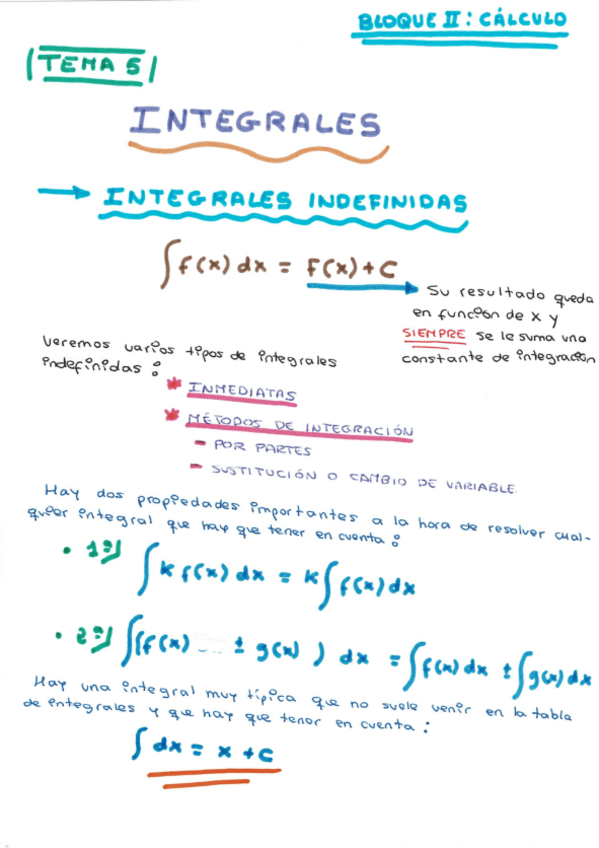 BLOQUE II: CÁLCULO
TEMA 5
INTEGRALES
→ INTEGRALES INDEFINIDAS
∫f(x) dx = F(x) + C
Su resultado queda
en función de x y
SIEMPRE se le suma una
constante de integración
Veremos varios tipos de integrales
indefinidas:
* INMEDIATAS
* MÉTODOS DE INTEGRACIÓN
- POR PARTES
- SUSTITUCIÓN O CAMBIO DE VARIABLE
Hay dos propiedades importantes a la hora de resolver cual-
quier integral que hay que tener en cuenta:
• 1ª/ ∫k f(x) dx = k∫f(x) dx
• 2ª/ ∫(f(x) ... ± g(x)) dx = ∫f(x) dx ± ∫g(x) dx
Hay una integral muy típica que no suele venir en la tabla
de integrales y que hay que tener en cuenta:
∫dx = x + C